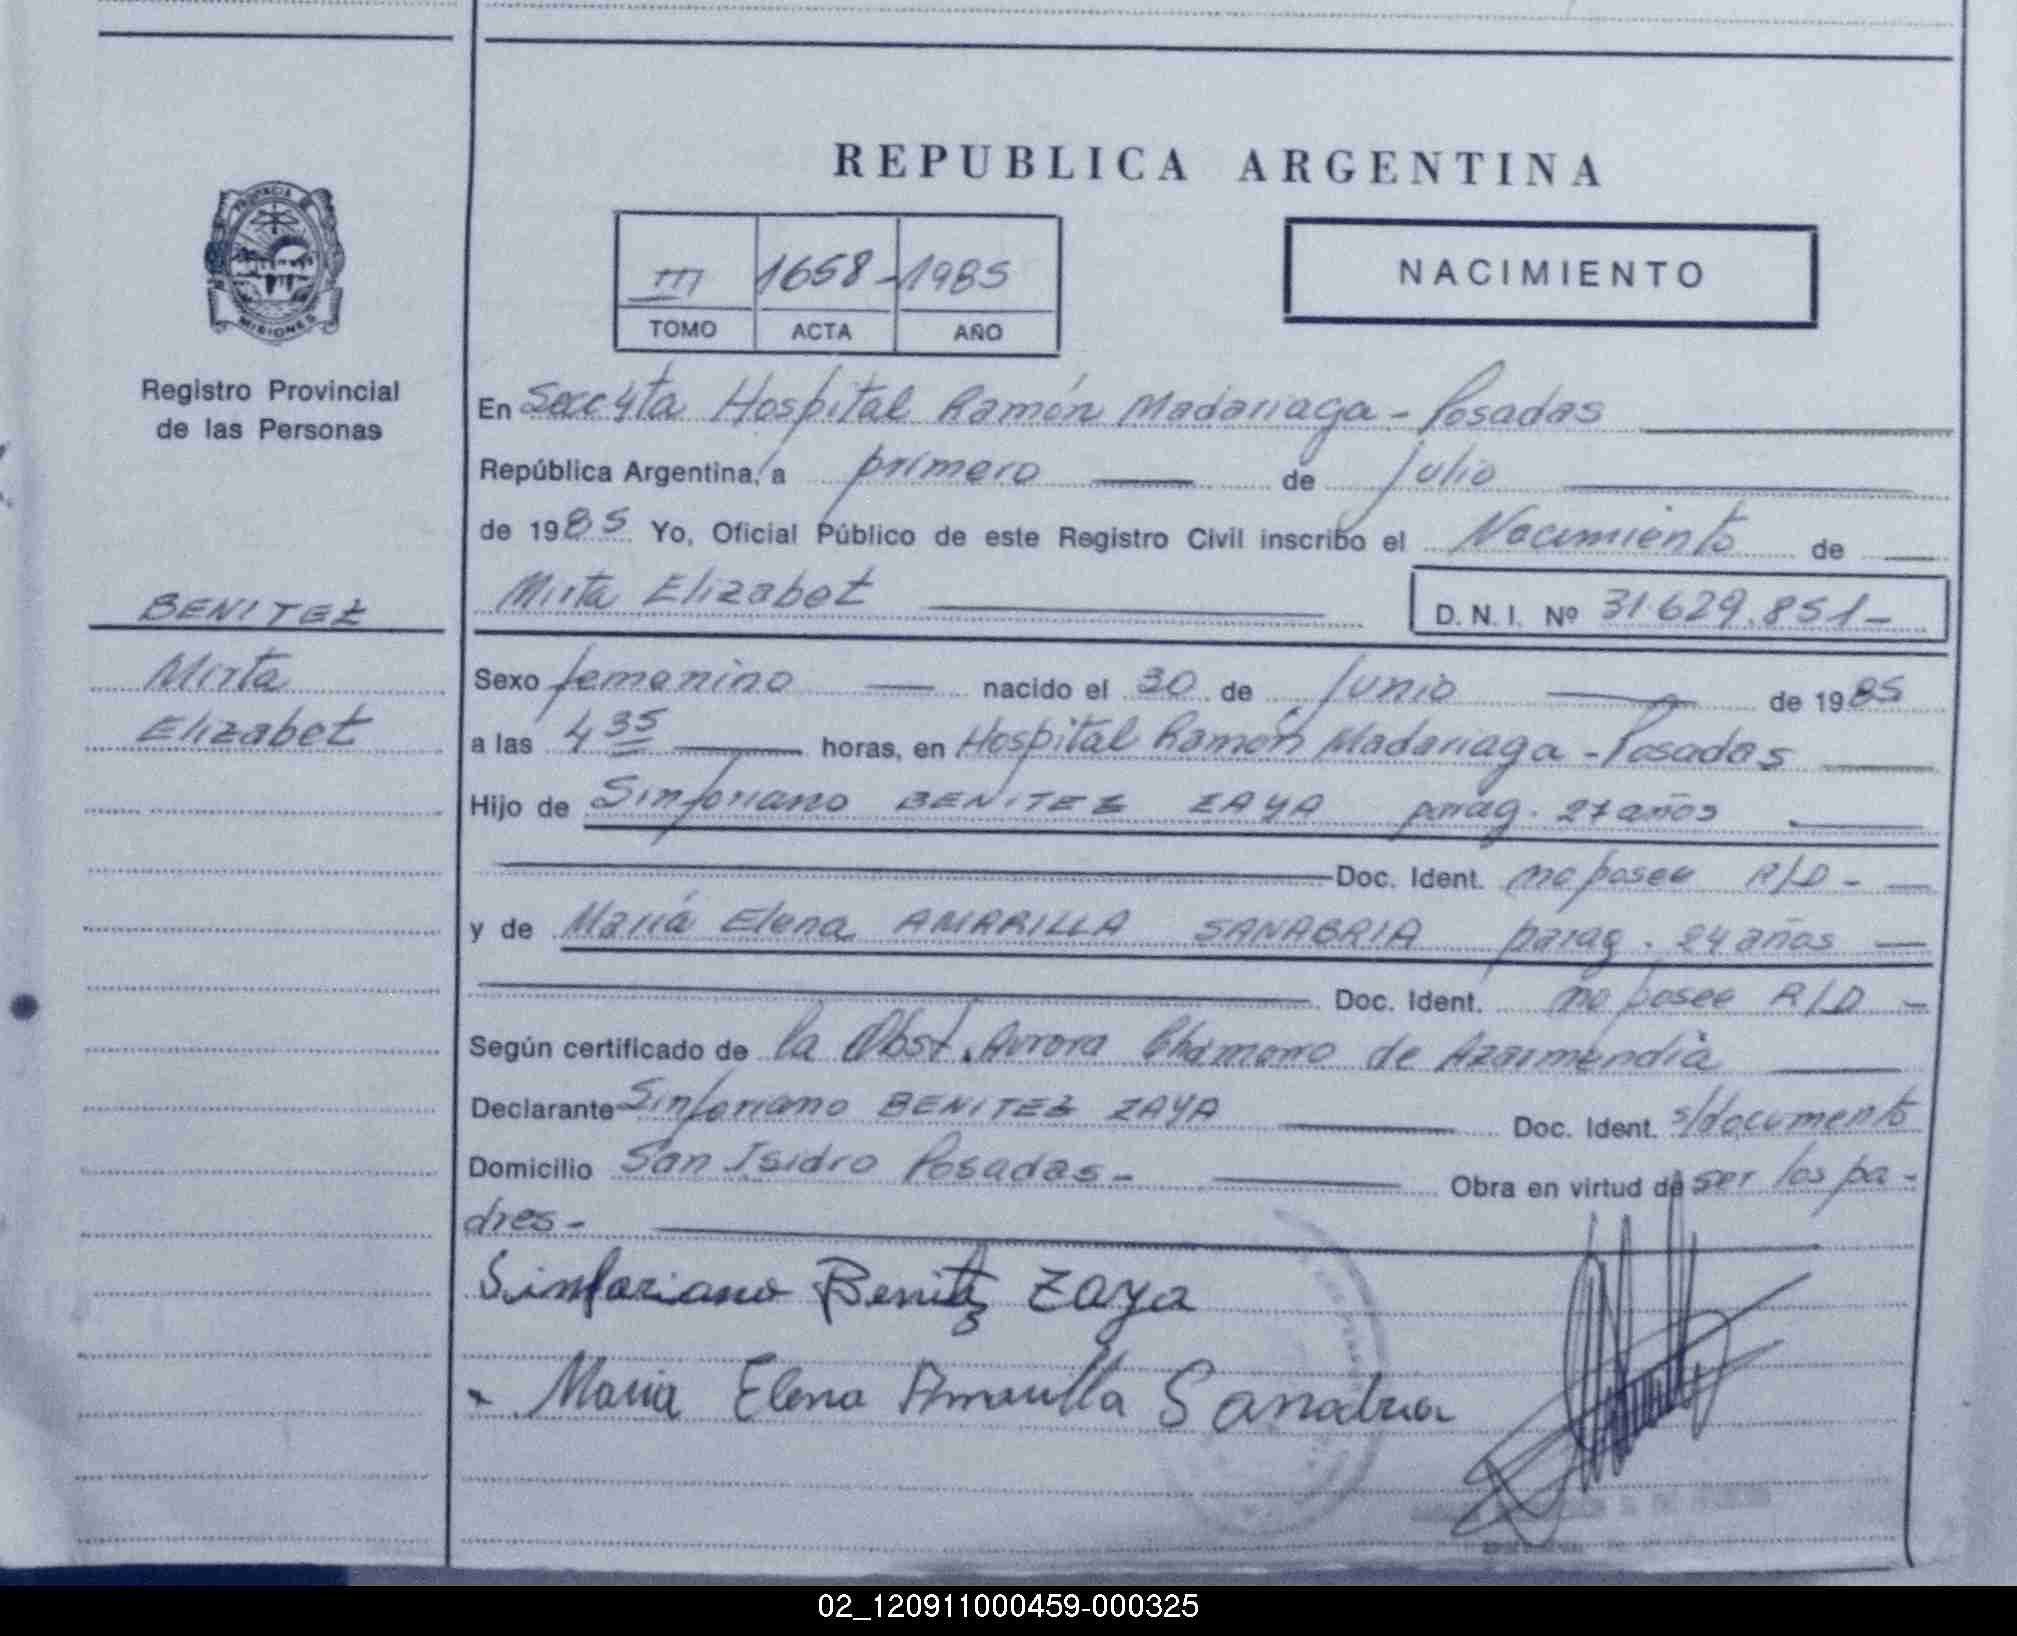 REPUBLICA ARGENTINA
PROVINCIA DE
MISIONES
Registro Provincial
de las Personas
III 1658- 1985
TOMO ACTA AÑO
NACIMIENTO
En Secc 4ta Hospital Ramón Madariaga - Posadas
República Argentina, a primero de julio
de 1985 Yo, Oficial Público de este Registro Civil inscribo el Nacimiento de
Mirta Elizabet D. N. I. Nº 31.629.851-
BENITEZ
Mirta
Elizabet
Sexo femenino nacido el 30 de Junio de 1985
a las 4 35 horas, en Hospital Ramón Madariaga - Posadas
Hijo de Sinforiano BENITEZ ZAYA parag. 27 años
Doc. Ident. no posee R/D -
y de María Elena AMARILLA SANABRIA parag. 24 años
Doc. Ident. no posee R/D -
Según certificado de la Obst. Aurora Chamorro de Azarmendia
Declarante Sinforiano BENITEZ ZAYA Doc. Ident. s/documento
Domicilio San Isidro Posadas - Obra en virtud de ser los pa-
dres-
Sinforiano Benitez Zaya
Maria Elena Amarilla Sanabria
02_120911000459-000325